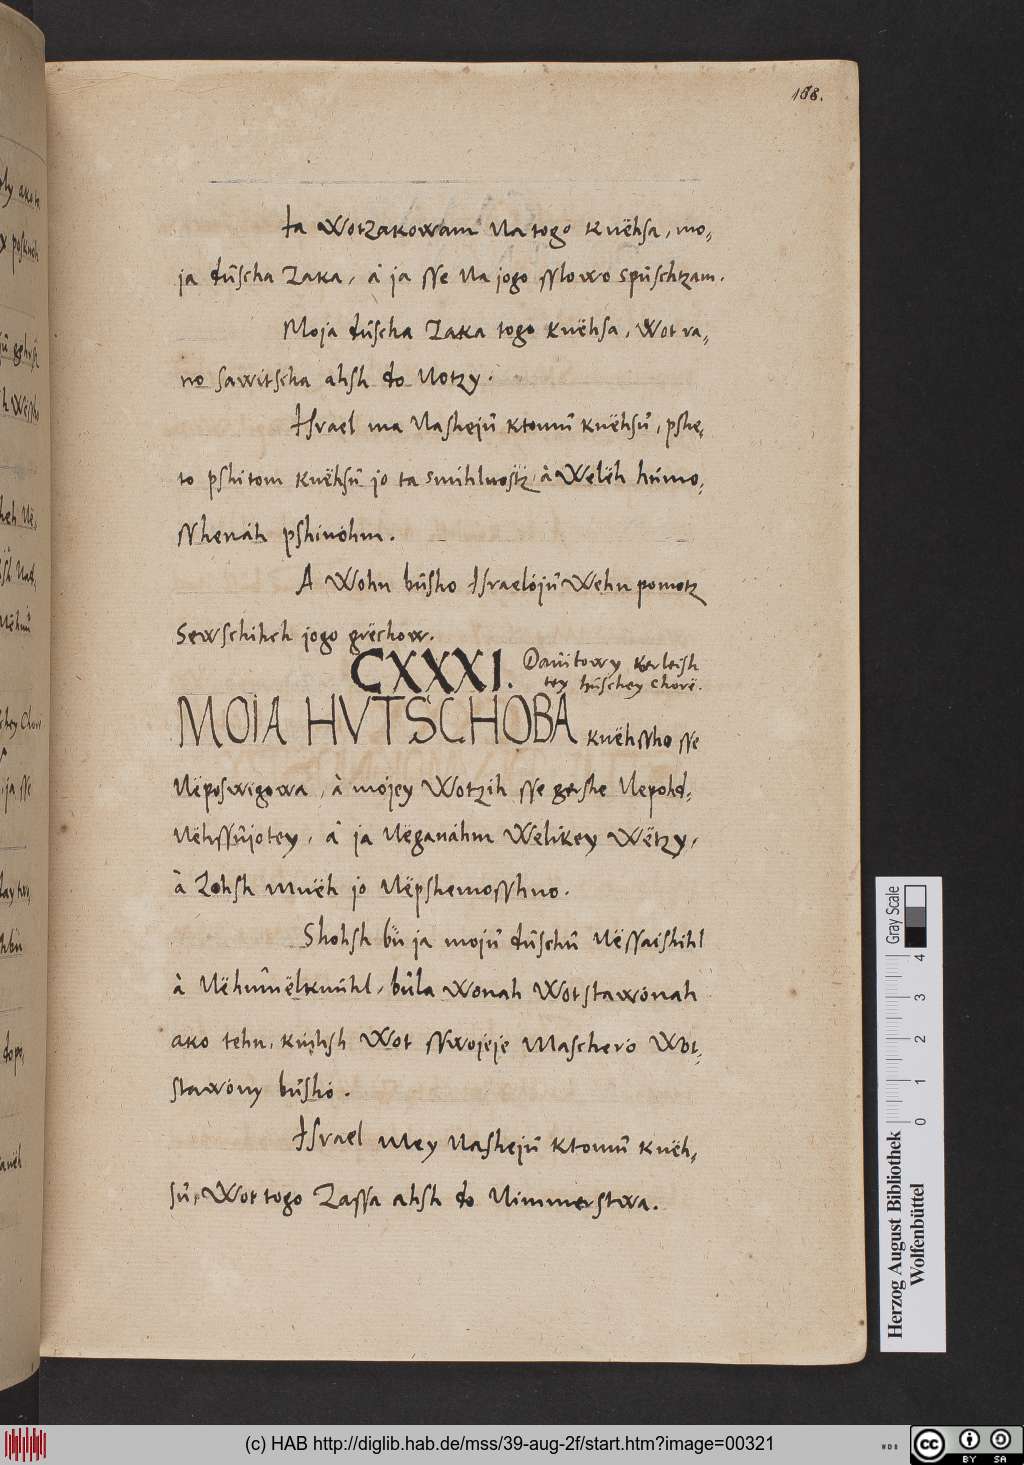 168.
Ja Wotzakowam Na togo knëhsa, mo,
ja dûscha Zaka, â ja sse Na jogo sslowo spûschtzam.
Moja dûscha Zaka togo knëhsa, Wot ra,
no sawitscha ahsh do Notzy.
Israel ma Nashejû ktomû knëhsû, pshe,
to pshitom knëhsû jo ta smihlnostz, â Welëh hûmo,
sshenáh pshinóhm.
A Wohn bûsho Israelójû Wehn pomotz
Sewschihch jogo grëchow.
CXXXI. Dawitowy kerleish
tey hûschey Chorë.
MOIA HVTSCHOBA knëhssho sse
Nëposwigowa, à mójey Wotzih sse gershe Nepohd,
Nëhssûjotey, â ja Nëganáhm Welikey Wëtzy,
â Zohsh mnëh jo Nëpshemosshno.
Shohsh bü ja mojû dûschû Nëssaishihl
à Nëhûmëlknûhl, bûla Wonah Wotstawónah
ako tehn, kûhsh Wot sswojeje Mascheró Wot,
stawóny bûshó.
Israel Mey Nashejû ktomû knëh,
sû, Wot togo Zassa ahsh do Nimmerstwa.
Gray Scale
0 1 2 3 4
Herzog August Bibliothek
Wolfenbüttel
(c) HAB http://diglib.hab.de/mss/39-aug-2f/start.htm?image=00321
WDB
cc BY SA